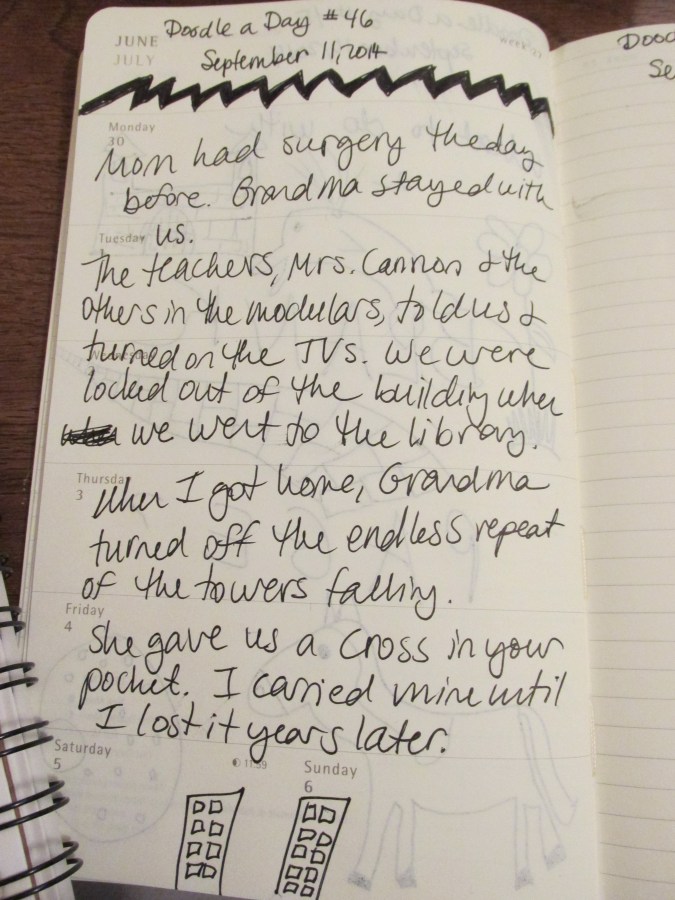 Doodle a Day #46
JUNE
September 11, 2014
JULY
WEEK 27
Monday
30
Mom had surgery the day
before. Grandma stayed with
Tuesday
us.
The teachers, Mrs. Cannon & the
others in the modulars, told us &
turned on the TVs. We were
locked out of the building when
we went to the library.
Thursday
3
When I got home, Grandma
turned off the endless repeat
of the towers falling.
Friday
4
She gave us a Cross in your
pocket. I carried mine until
I lost it years later.
Saturday
5
11:59
Sunday
6
Dood
Se